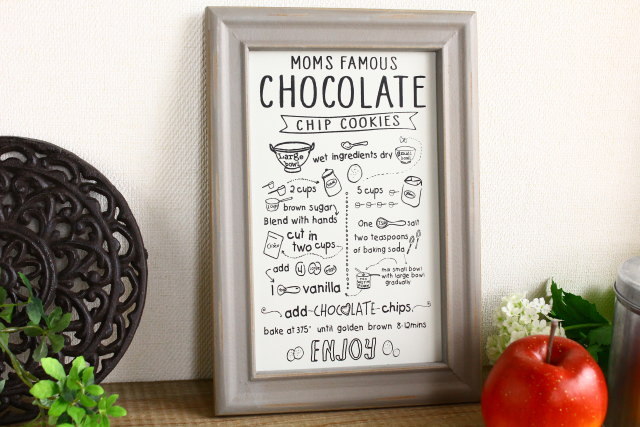 MOMS FAMOUS
CHOCOLATE
CHIP COOKIES
Large bowl
wet ingredients dry
small bowl
2 cups
brown sugar
Blend with hands
cut in
two cups
add 4
1 vanilla
5 cups
One salt
two teaspoons
of baking soda
mix small bowl
with large bowl
gradually
add CHOCOLATE chips
bake at 375° until golden brown 8-12mins
ENJOY